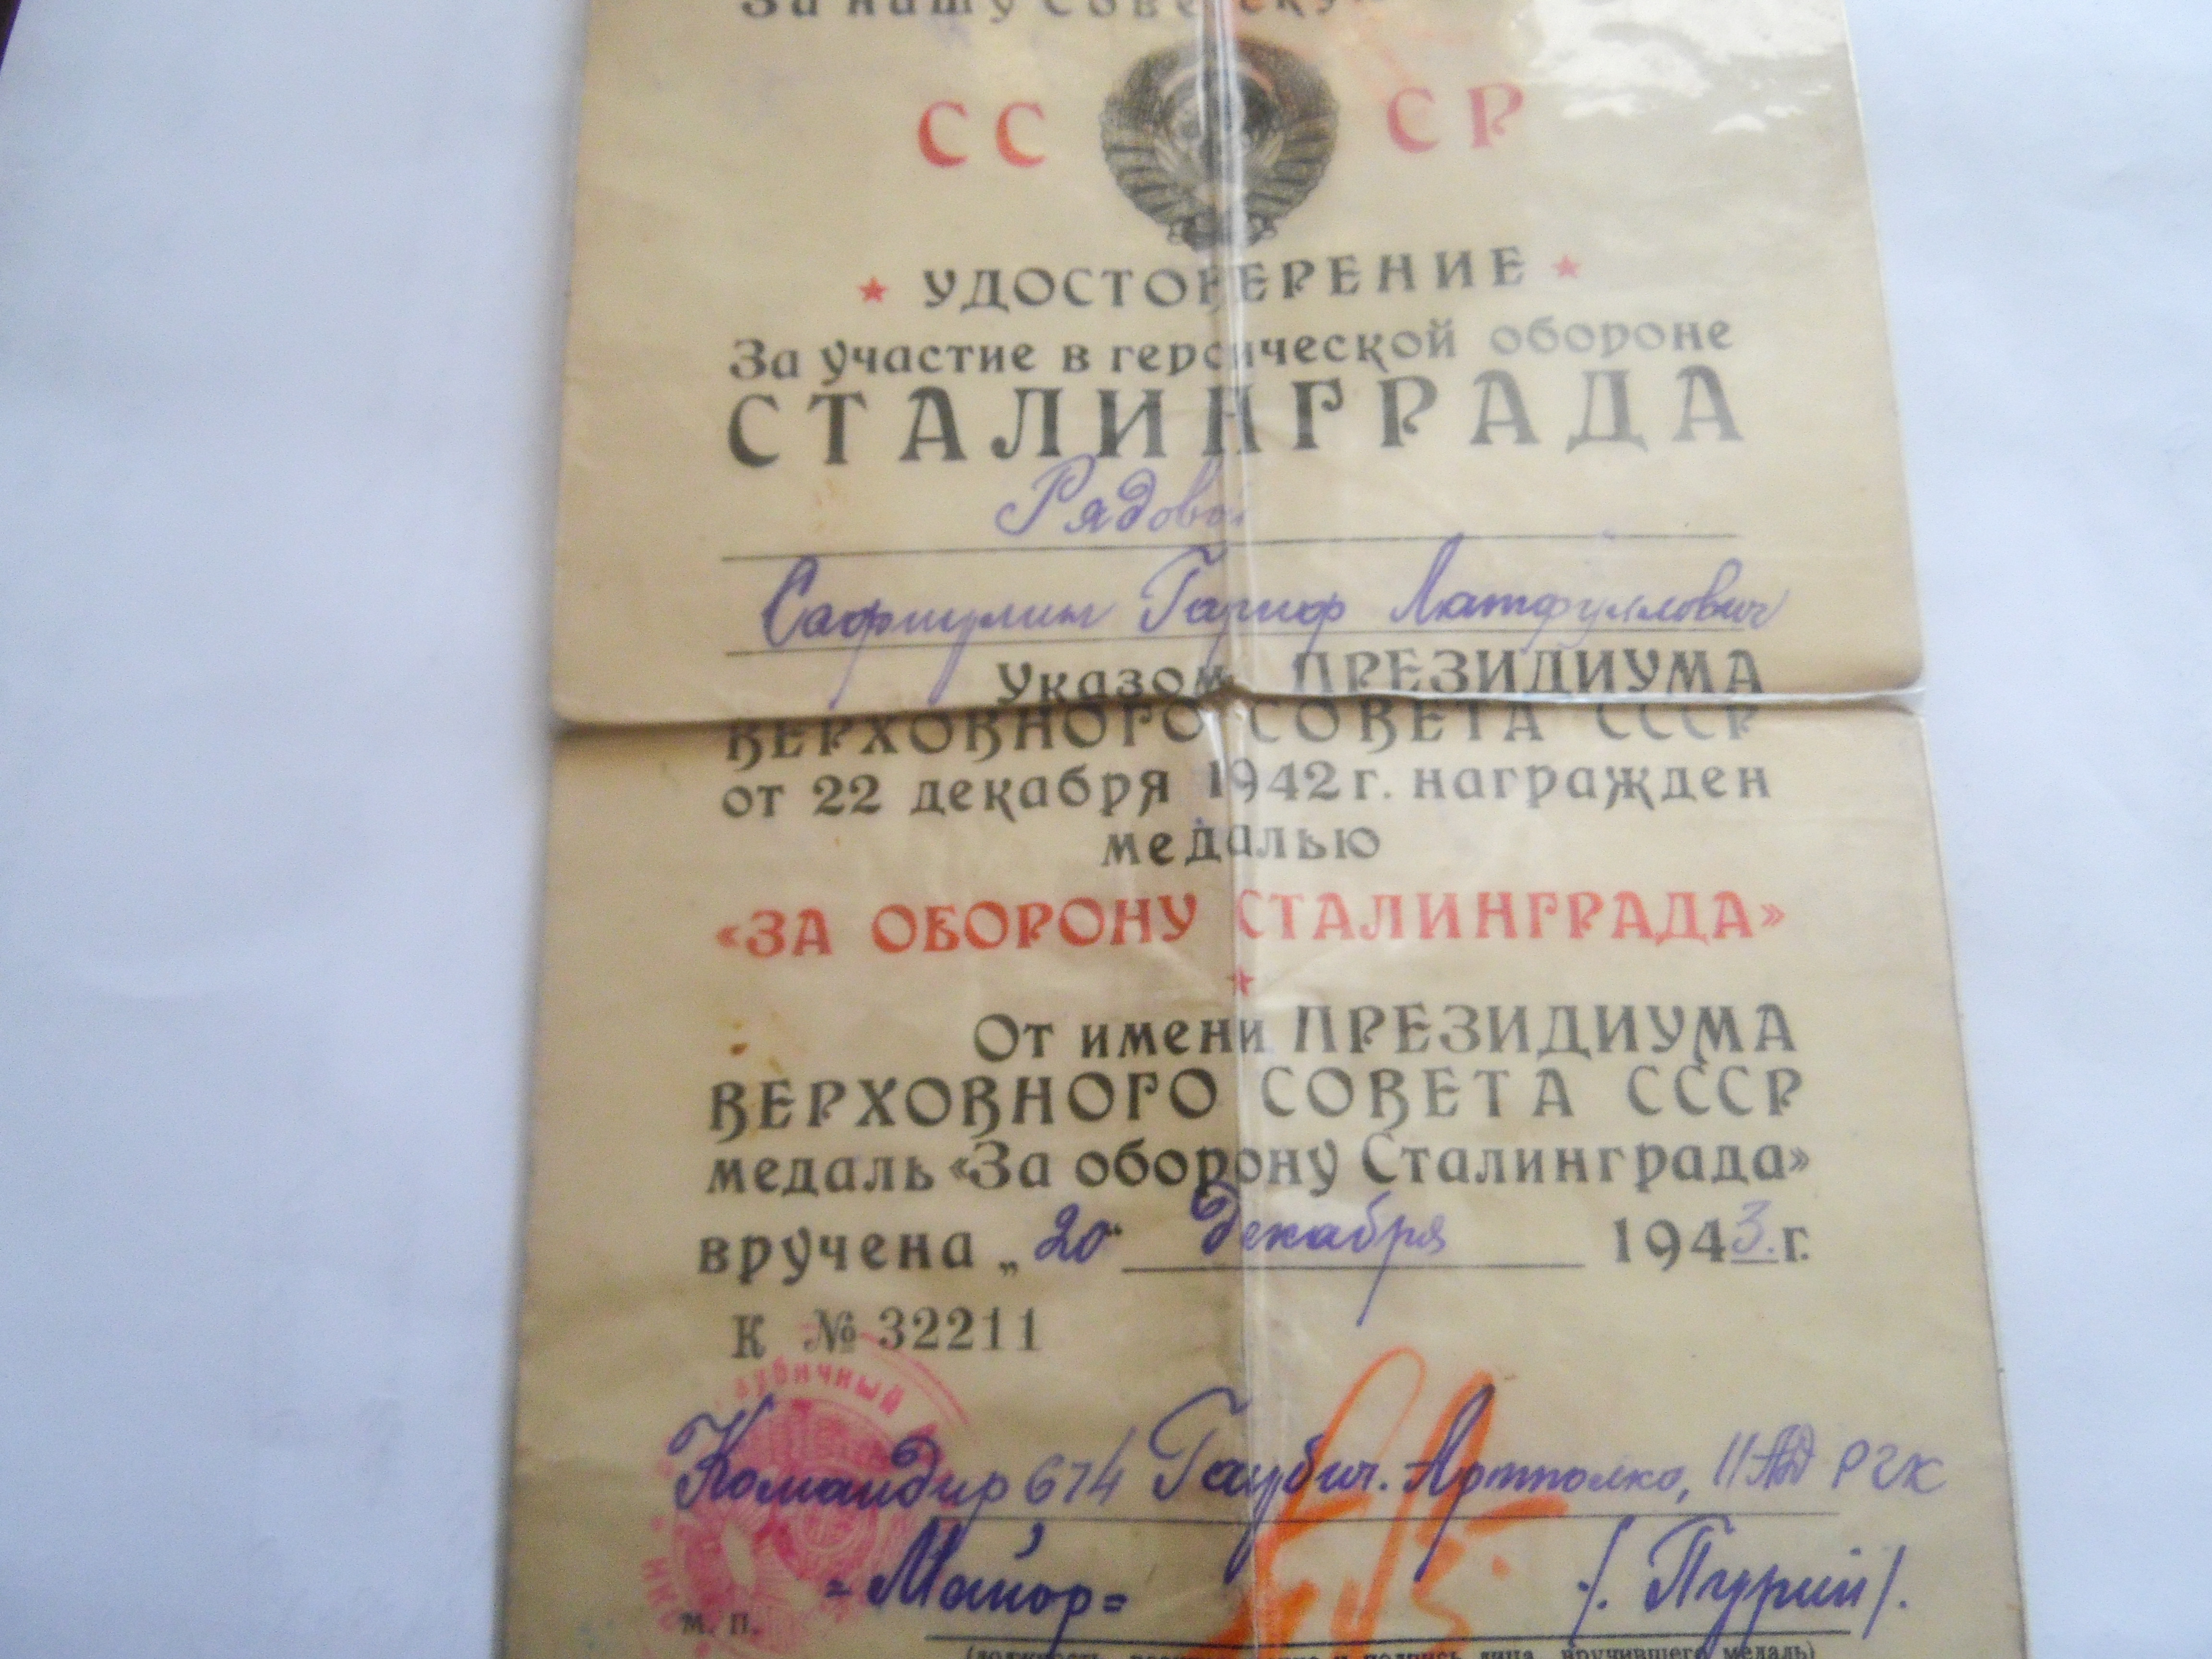 За нашу Советскую
СС СР
УДОСТОВЕРЕНИЕ
За участие в героической обороне
СТАЛИНГРАДА
Рядовой
Сафиулин Гариф Латфуллович
Указом ПРЕЗИДИУМА
ВЕРХОВНОГО СОВЕТА СССР
от 22 декабря 1942 г. награжден
медалью
«ЗА ОБОРОНУ СТАЛИНГРАДА»
От имени ПРЕЗИДИУМА
ВЕРХОВНОГО СОВЕТА СССР
медаль «За оборону Сталинграда»
вручена „20“ декабря 1943. г.
К № 32211
Командир 674 Гаубич. Артполка, 11 АД РГК
=Майор= /. Пурий /.
М. П.
подпись лица, вручившего медаль)